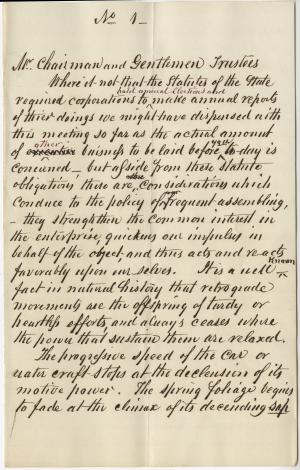 No 1
Mr. Chairman and Gentlemen Trustees
Where it not that the Statutes of the State
hold annual Elections and
required corporations to make annual reports
of their doings we might have dispensed with
this meeting so far as the actual amount
other you
of buisness to be laid before to day is
concerned – but aside from these statute
obligations there are, Considerations which
conduce to the policy of frequent assembling,
– they strengthen the common interest in
the enterprise, quickens our impulus in
behalf of the object, and thus acts and re-acts
favorably upon our selves. It is a well known
fact in natural history that retrograde
movements are the offspring of tardy or
heartless efforts, and always ceases where
the power that sustain them are relaxed.
The progressive speed of the Car or
water craft stops at the declension of its
motive power. The spring foliage begins
to fade at the climax of its decending sap